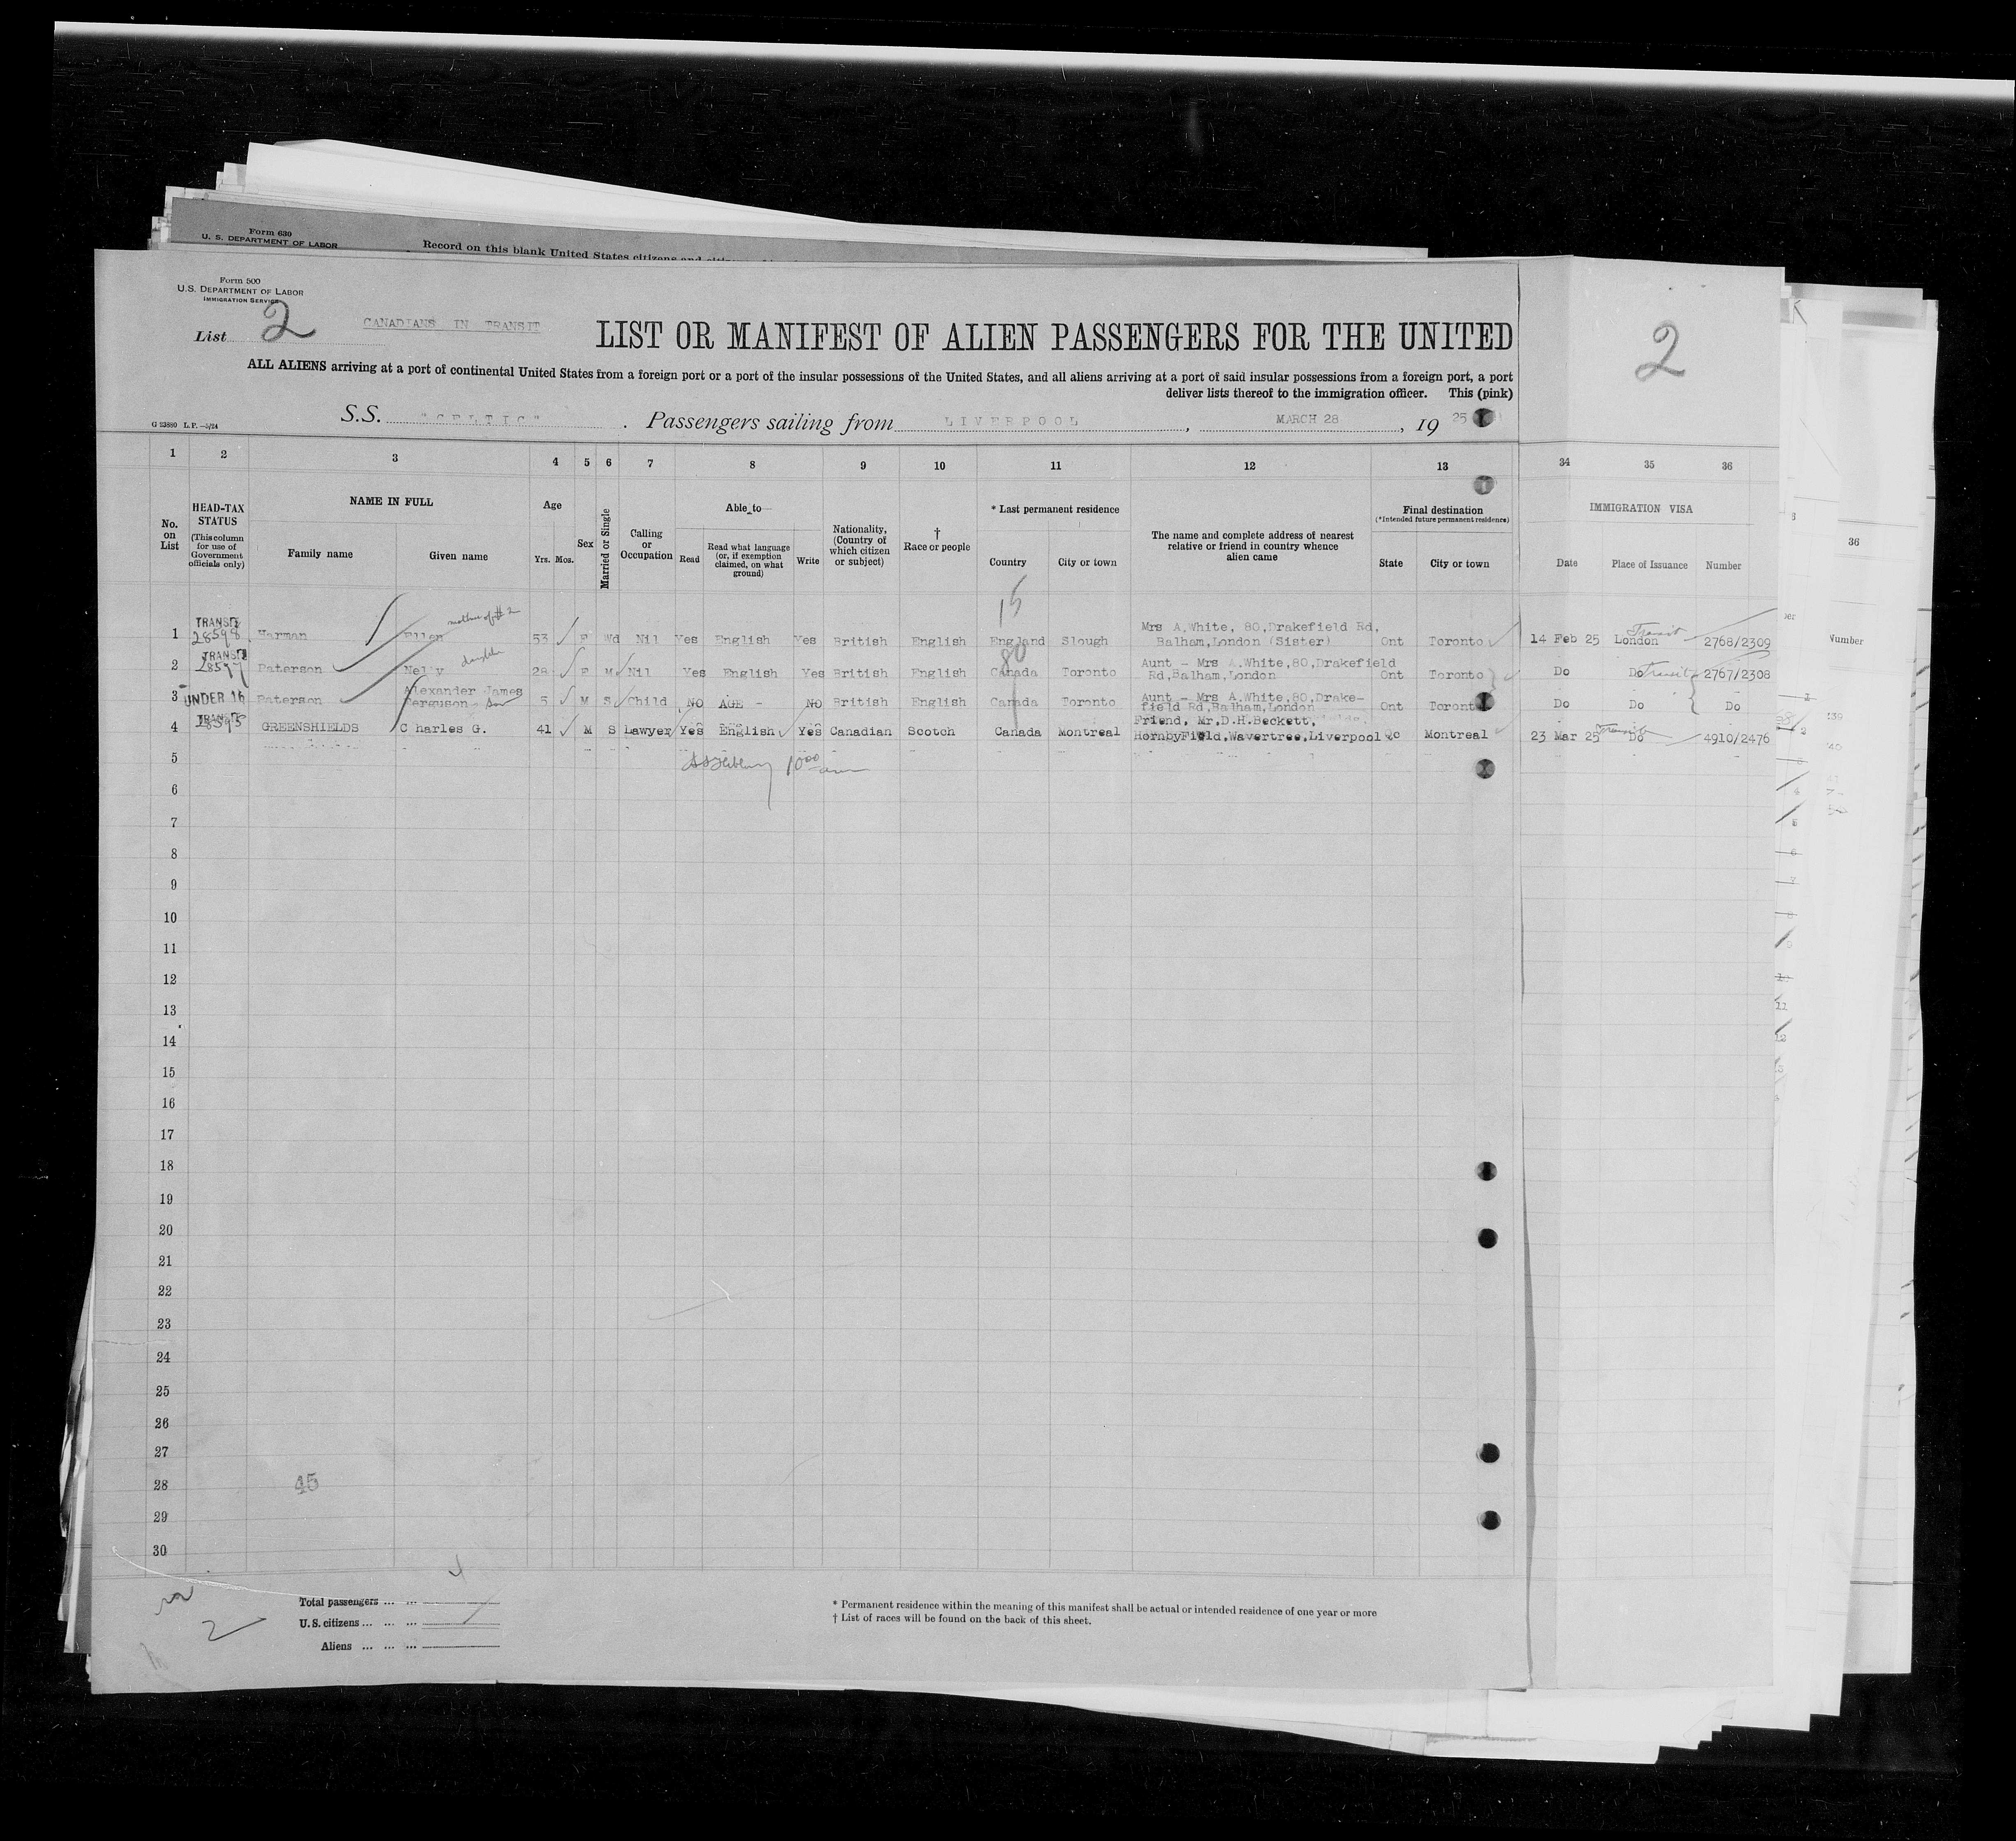 Form 630
U. S. DEPARTMENT OF LABOR
Record on this blank United States citizens and
Form 500
U.S. DEPARTMENT OF LABOR
IMMIGRATION SERVICE
List 2
CANADIANS IN TRANSIT
LIST OR MANIFEST OF ALIEN PASSENGERS FOR THE UNITED
2
ALL ALIENS arriving at a port of continental United States from a foreign port or a port of the insular possessions of the United States, and all aliens arriving at a port of said insular possessions from a foreign port, a port
deliver lists thereof to the immigration officer. This (pink)
G 23880 L.P.—5/24
S.S. "CELTIC". Passengers sailing from LIVERPOOL, MARCH 28, 19 25
1 2 3 4 5 6 7 8 9 10 11 12 13 34 35 36
No. on List
HEAD-TAX STATUS (This column for use of Government officials only)
NAME IN FULL
Family name Given name
Age
Yrs. Mos.
Sex
Married or Single
Calling or Occupation
Able to
Read
Read what language (or, if exemption claimed, on what ground)
Write
Nationality, (Country of which citizen or subject)
† Race or people
* Last permanent residence
Country City or town
The name and complete address of nearest relative or friend in country whence alien came
Final destination
(*Intended future permanent residence)
State City or town
IMMIGRATION VISA
Date Place of Issuance Number
36
Number
15
mother of #2
1 TRANSIT 28598 Harman Ellen 53 F Wd Nil Yes English Yes British English England Slough Mrs A.White, 80,Drakefield Rd, Balham,London (Sister) Ont Toronto 14 Feb 25 London Transit 2768/2309
80
2 TRANSIT 28597 Paterson Nelly daughter 28 F M Nil Yes English Yes British English Canada Toronto Aunt - Mrs A.White,80,Drakefield Rd,Balham,London Ont Toronto Do Do Transit 2767/2308
3 UNDER 16 Paterson Alexander James Ferguson son 5 M S Child NO AGE - NO British English Canada Toronto Aunt - Mrs A.White,80,Drake-field Rd,Balham,London Ont Toronto Do Do Do
4 TRANSIT 28595 GREENSHIELDS Charles G. 41 M S Lawyer Yes English Yes Canadian Scotch Canada Montreal Friend, Mr,D.H.Beckett, HornbyField,Wavertree,Liverpool Montreal 23 Mar 25 Transit Do 4910/2476
5
10 00 am
6
7
8
9
10
11
12
13
14
15
16
17
18
19
20
21
22
23
24
25
26
27
28
45
29
30
4
2
Total passengers ... ...
U.S. citizens ... ... ...
Aliens ... ... ...
* Permanent residence within the meaning of this manifest shall be actual or intended residence of one year or more
† List of races will be found on the back of this sheet.